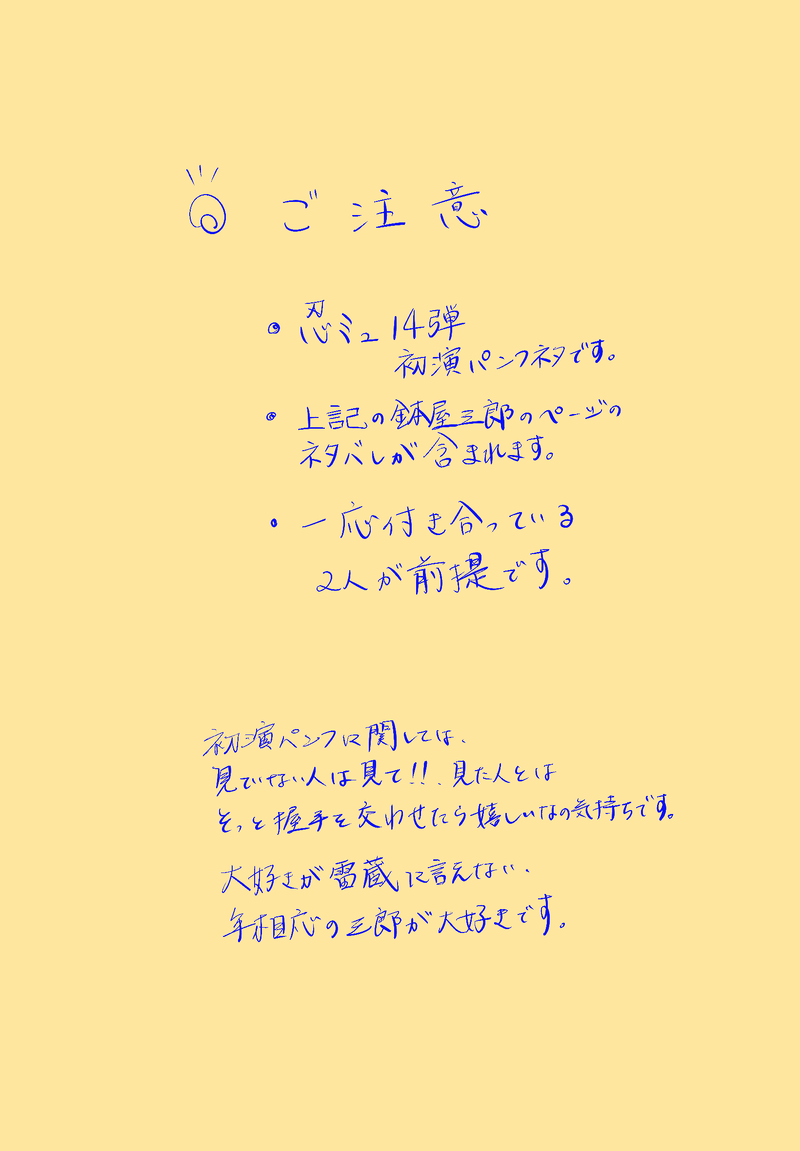 ご注意
・忍ミュ14弾
初演パンフネタです。
・上記の鉢屋三郎のページの
ネタバレが含まれます。
・一応付き合っている
2人が前提です。
初演パンフに関しては、
見ていない人は見て!!、見た人とは
そっと握手を交わせたら嬉しいなの気持ちです。
大好きが雷蔵に言えない、
年相応の三郎が大好きです。